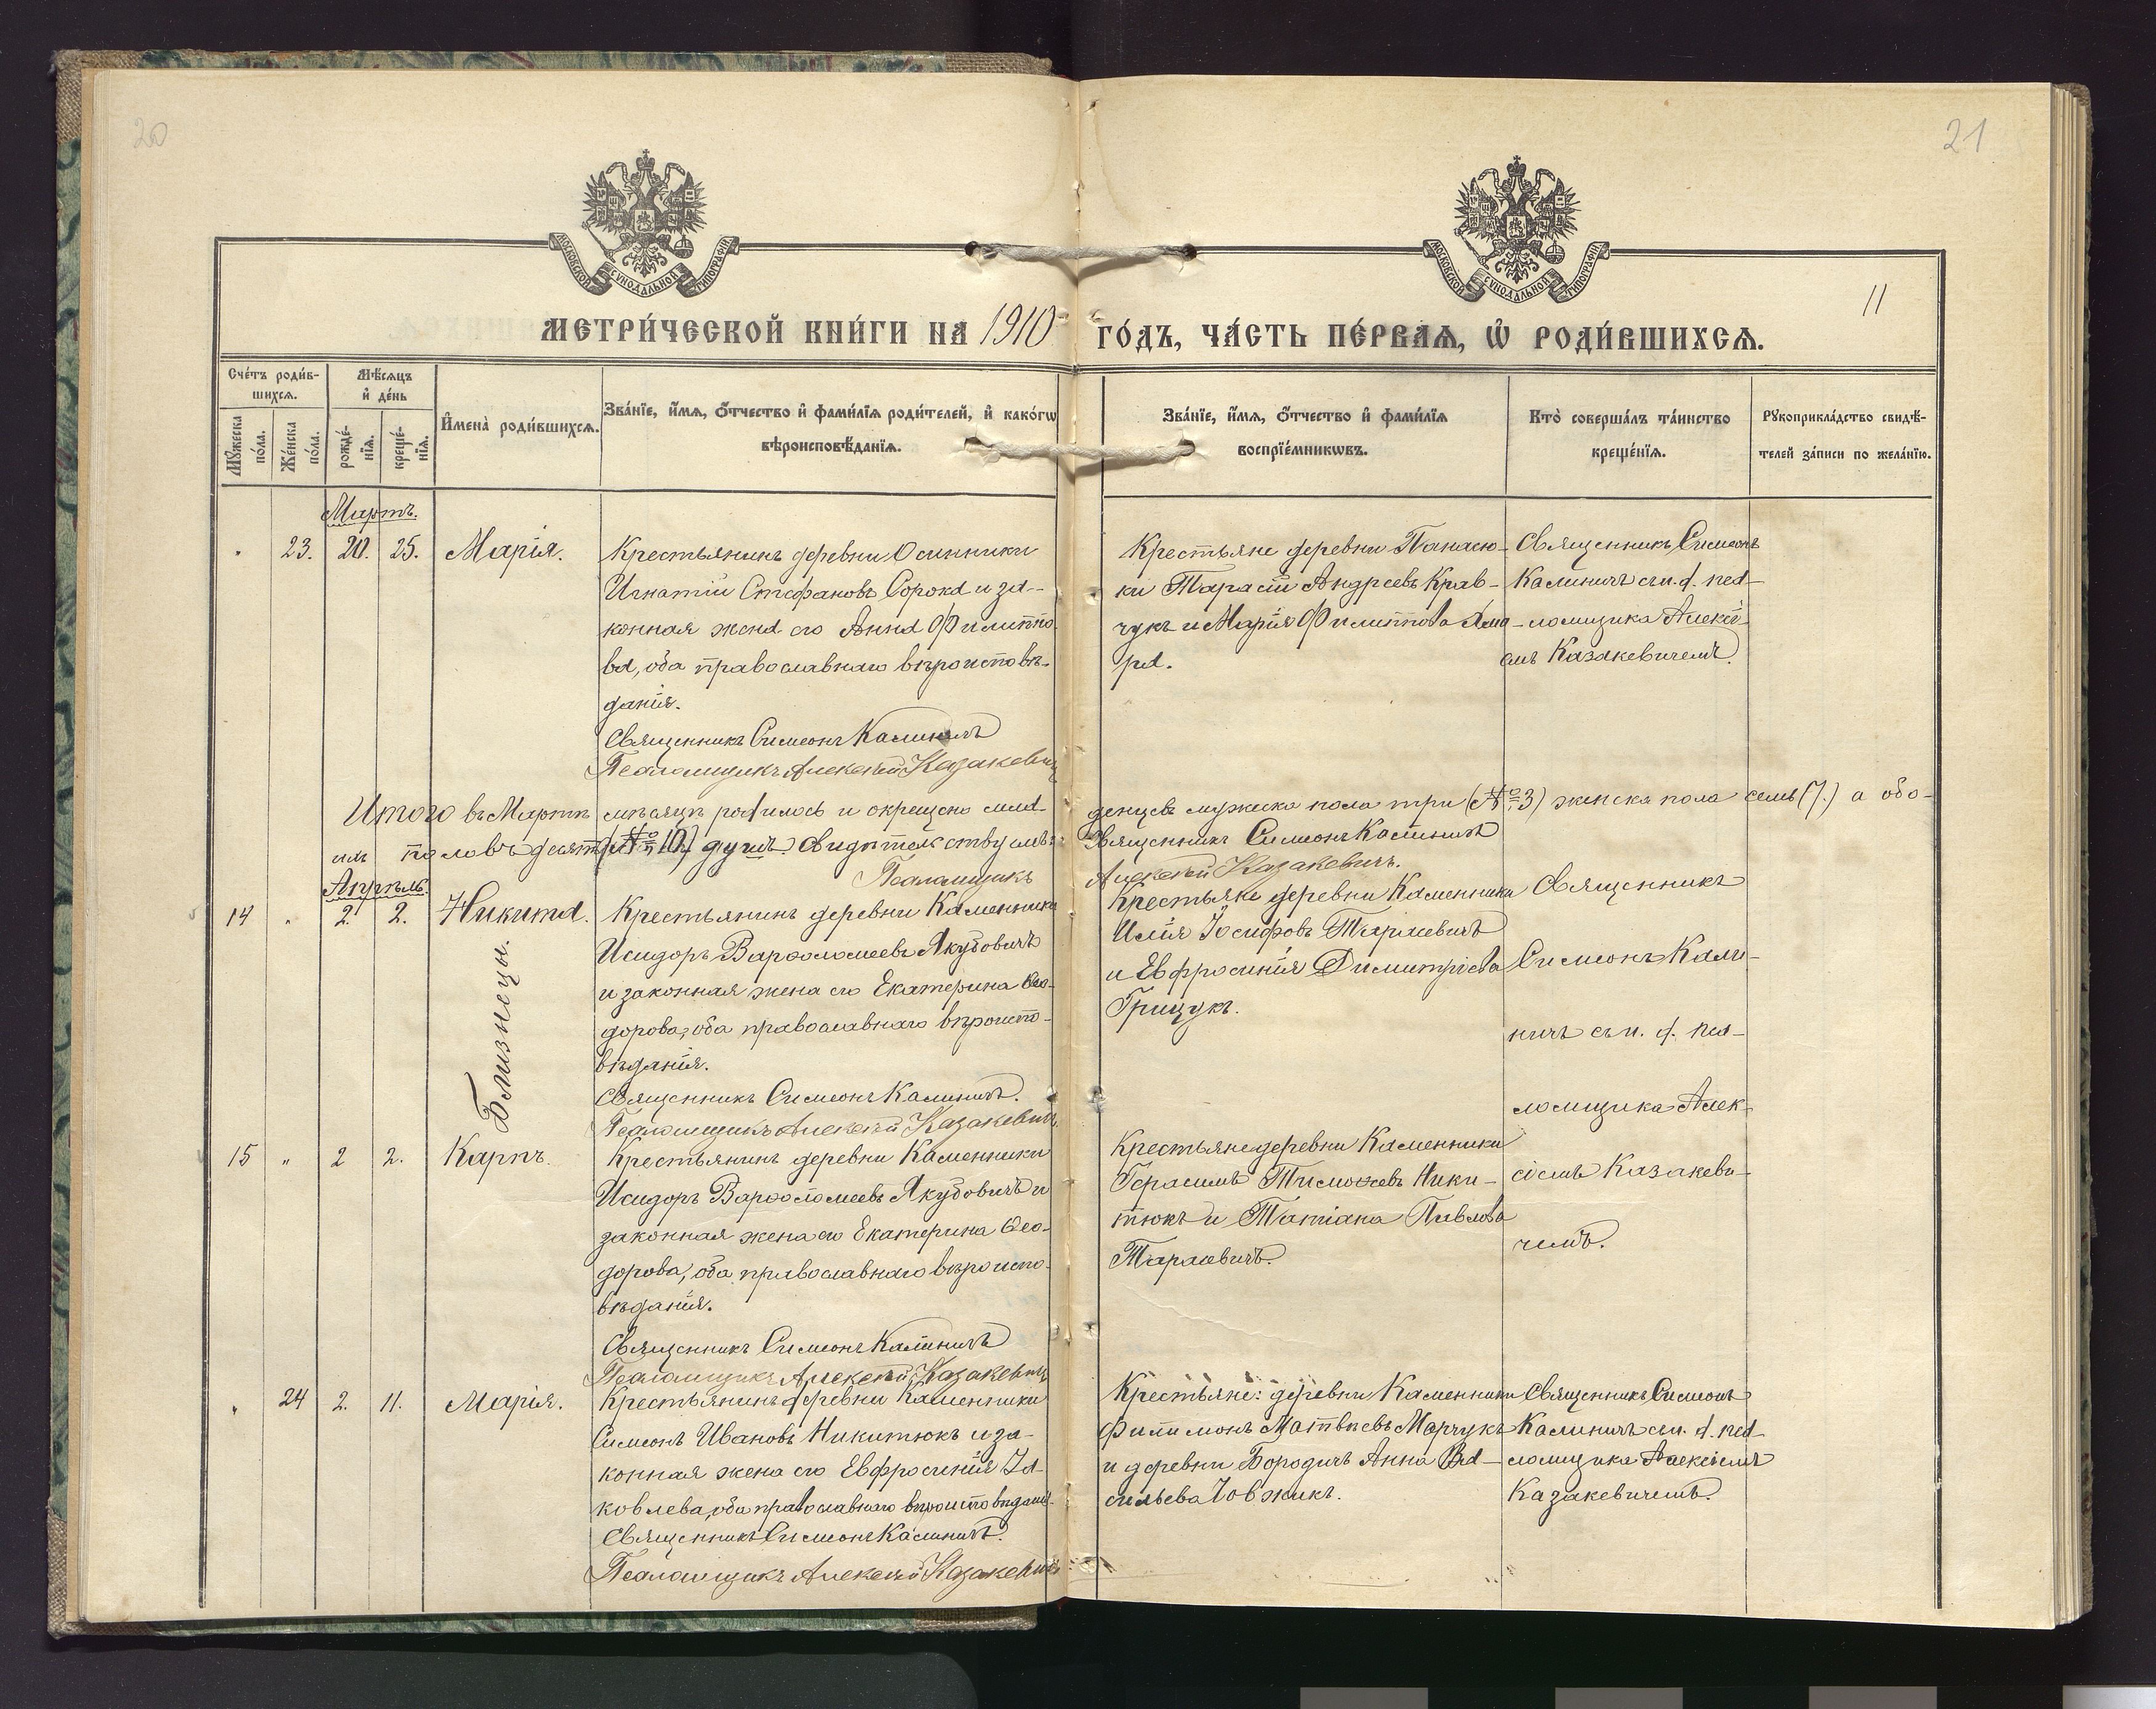 20
21
МОСКОВСКОЙ СУНОДАЛЬНОЙ ТИПОГРАФІИ
МОСКОВСКОЙ СУНОДАЛЬНОЙ ТИПОГРАФІИ
11
МЕТРИ́ЧЕСКОЙ КНИ́ГИ НА 1910 ГО́ДЪ, ЧА́СТЬ ПЕ́РВАѦ, Ѡ҆ РОДИ́ВШИХСѦ.
Сче́тъ роди́в-
шихсѧ.
Мѣ́сѧцъ
и҆ де́нь
Мꙋ́жеска
по́ла.
Же́нска
по́ла.
рожде́-
нїѧ.
креще́-
нїѧ.
И҆мена̀ роди́вшихсѧ.
Зва́нїе, и҆́мѧ, ѻ҆́тчество и҆ фами́лїѧ роди́телей, и҆ како́гѡ
вѣроисповѣ́данїѧ.
Зва́нїе, и҆́мѧ, ѻ҆́тчество и҆ фами́лїѧ
воспрїе́мникѡвъ.
Кто̀ соверша́лъ та́инство
креще́нїѧ.
Рꙋкоприкла́дство свидѣ́-
телей за́писи по жела́нїю.
Мартъ.
" 23. 20. 25. Марія.
Крестьянинъ деревни Осинники
Игнатій Стефановъ Сорока и за-
конная жена его Анна Филиппо-
ва, оба православнаго вѣроисповѣ-
данія.
Священникъ Симеонъ Калиничъ
Псаломщикъ Алексѣй Казакевичъ
Крестьяне деревни Панасю-
ки Тарасій Андреевъ Крав-
чукъ и Марія Филиппова
ра.
Священникъ Симеонъ
Калиничъ съ и. д. пса-
ломщика Алексѣ-
емъ Казакевичемъ.
Итого въ Мартѣ мѣсяцѣ родилось и окрещено мла-
денцевъ мужеска пола три (№ 3) женска пола семь (7.) а обо-
ихъ половъ десять (№ 10.) душъ. Свидѣтельствуемъ:
Священникъ Симеонъ Калиничъ
Псаломщикъ Алексѣй Казакевичъ.
Апрѣль.
14 " 2. 2. Никита.
Близнецы.
Крестьянинъ деревни Каменники
Исидоръ Варѳоломеевъ Якубовичъ
и законная жена его Екатерина Ѳео-
дорова, оба православнаго вѣроиспо-
вѣданія.
Священникъ Симеонъ Калиничъ.
Псаломщикъ Алексѣй Казакевичъ.
Крестьяне деревни Каменники
Илія Іосифовъ Тарасевичъ
и Евфросинія Димитріева
Грицукъ.
Священникъ
Симеонъ Кали-
ничъ съ и. д. пса-
ломщика Алек-
сіемъ Казакеви-
чемъ.
15 " 2 2. Карпъ.
Крестьянинъ деревни Каменники
Исидоръ Варѳоломеевъ Якубовичъ и
законная жена его Екатерина Ѳео-
дорова, оба православнаго вѣроиспо-
вѣданія.
Священникъ Симеонъ Калиничъ
Псаломщикъ Алексѣй Казакевичъ
Крестьяне деревни Каменники
Герасимъ Тимоѳеевъ Ники-
тюкъ и Татіана Павлова
Тарасевичъ.
" 24 2. 11. Марія.
Крестьянинъ деревни Каменники
Симеонъ Ивановъ Никитюкъ и за-
конная жена его Евфросинія Іа-
ковлева, оба православнаго вѣроисповѣданія.
Священникъ Симеонъ Калиничъ.
Псаломщикъ Алексѣй Казакевичъ.
Крестьяне: деревни Каменники
Филимонъ Матвѣевъ Марчукъ
и деревни Бородичъ Анна Ва-
сильева Човжикъ.
Священникъ Симеонъ
Калиничъ съ и. д. пса-
ломщика Алексіемъ
Казакевичемъ.